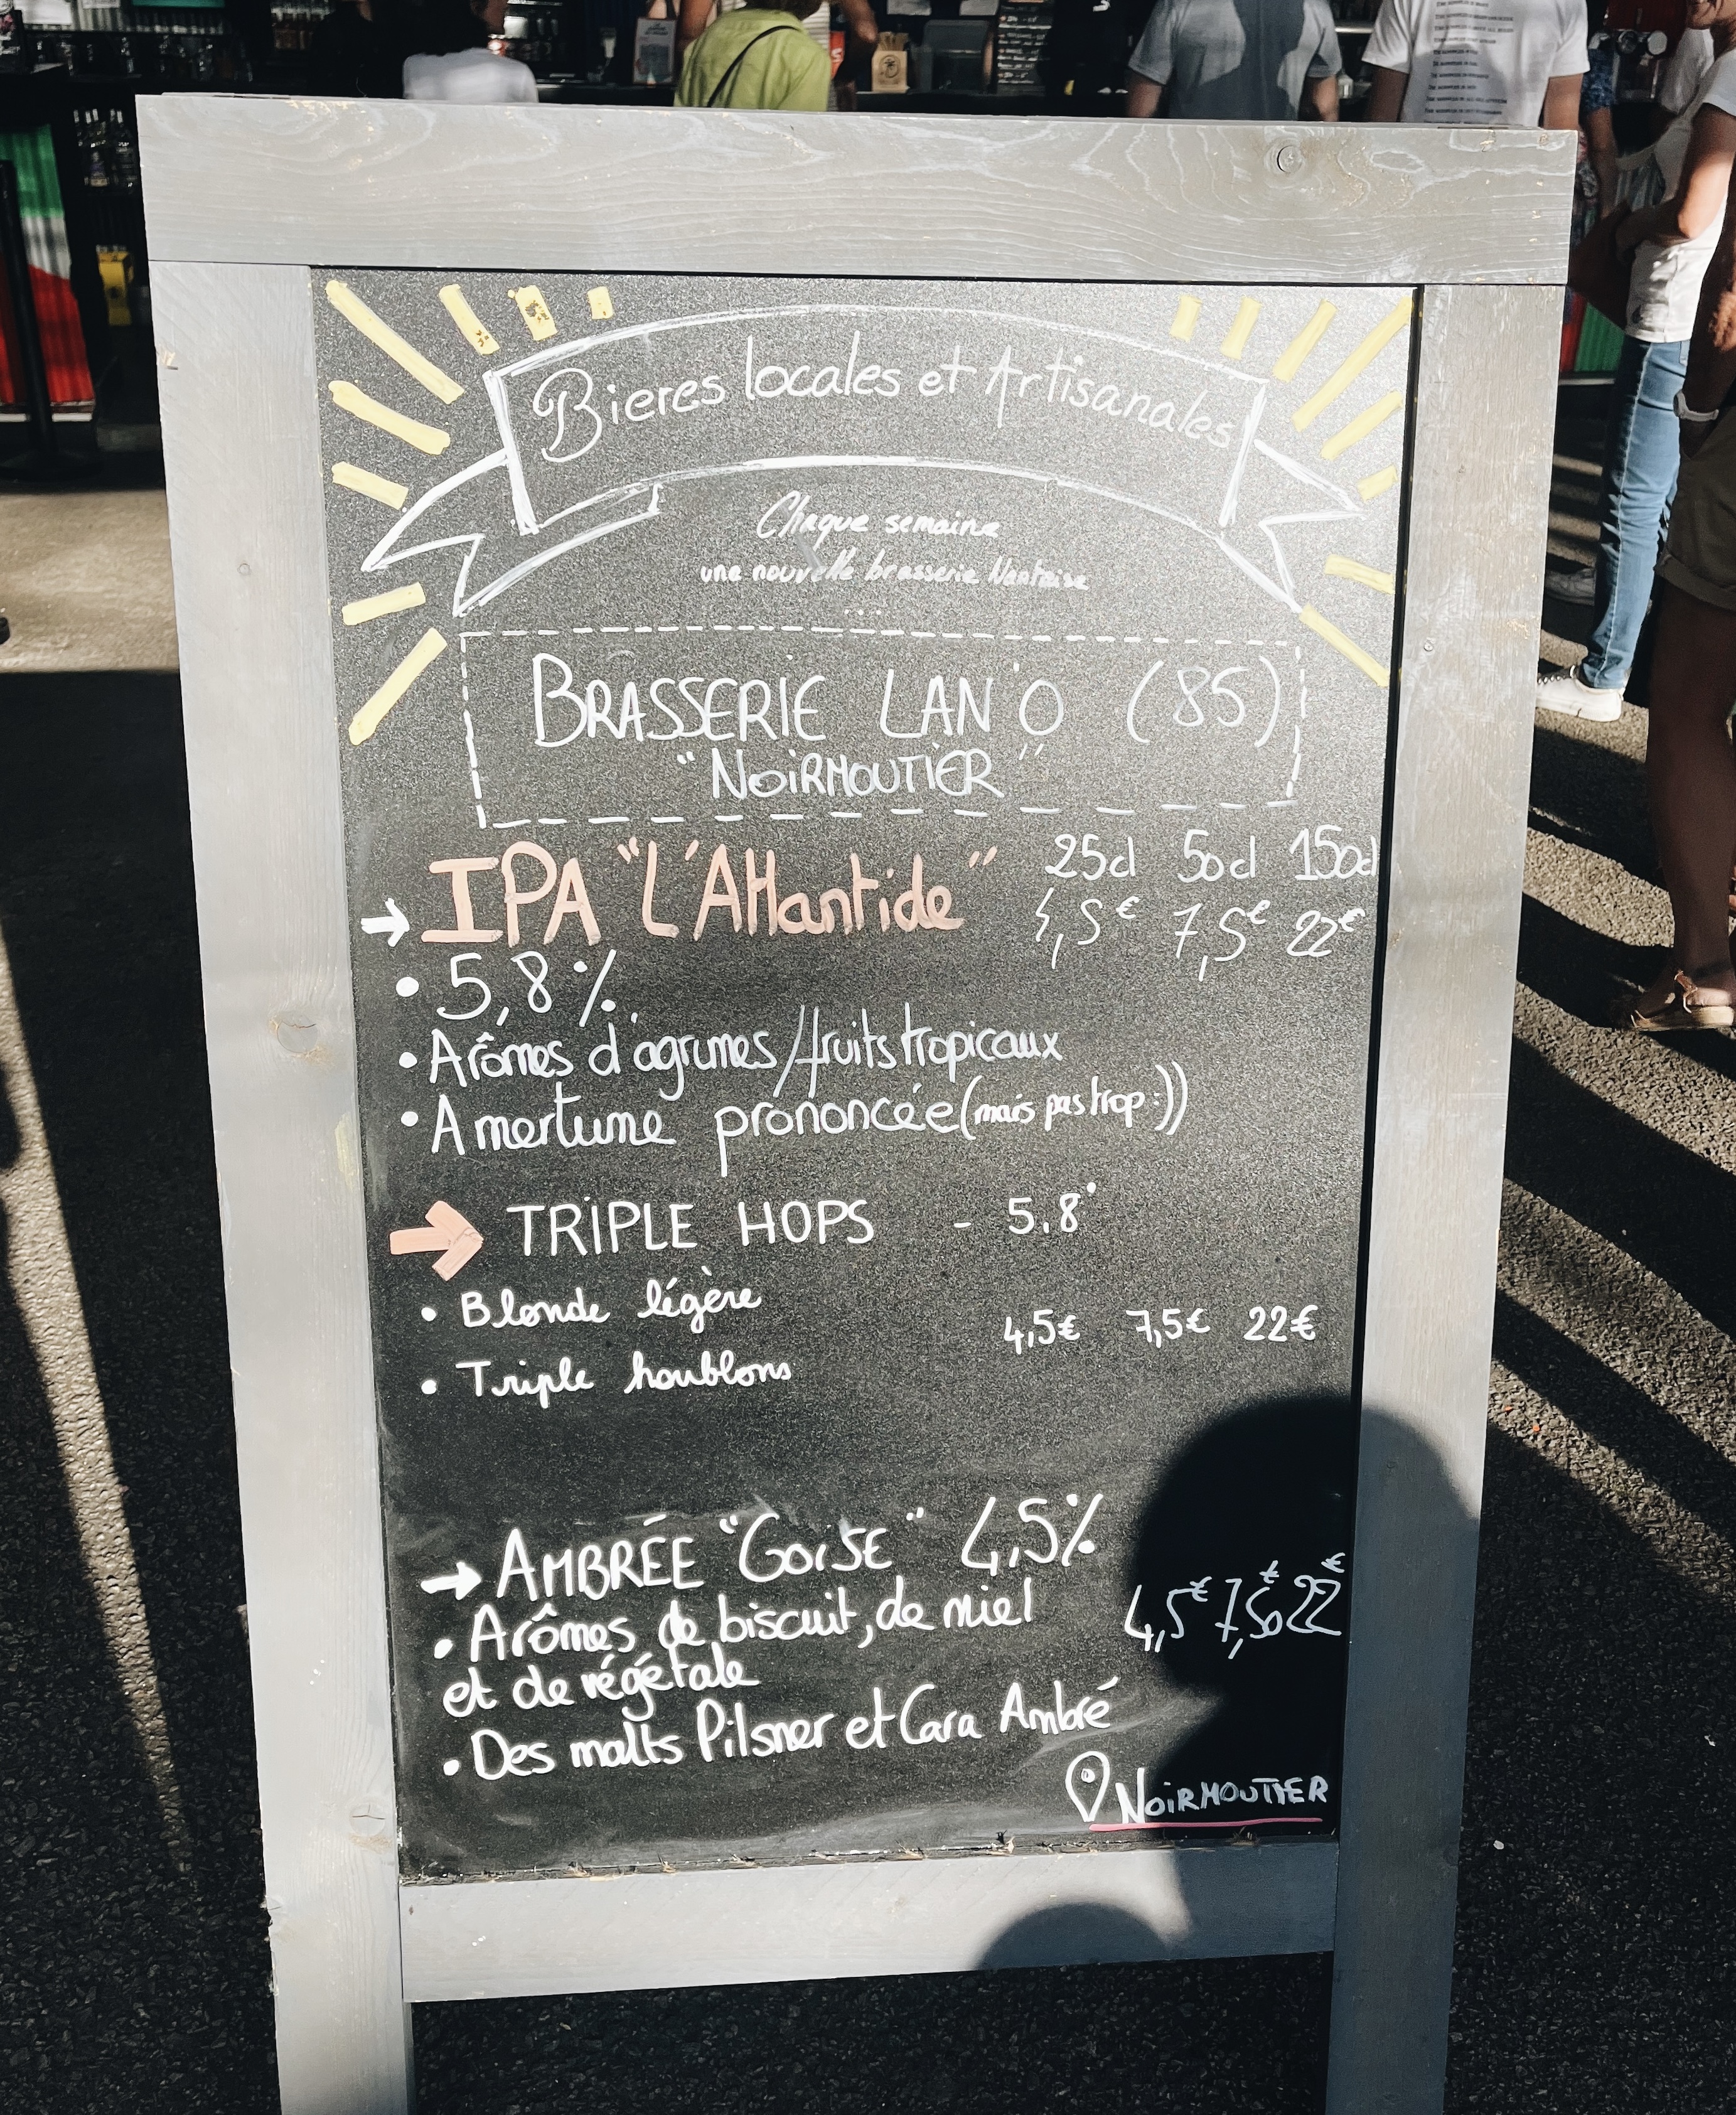 Bieres locales et Artisanales
Chaque semaine
une nouvelle brasserie Nantaise
...
BRASSERIE LAN'O (85)
"NOIRMOUTIER"
→ IPA "L'Atlantide" 25cl 50cl 150cl
4,5€ 7,5€ 22€
• 5,8%
• Arômes d'agrumes/fruits tropicaux
• Amertume prononcée (mais pas trop :))
→ TRIPLE HOPS - 5.8°
• Blonde légère
4,5€ 7,5€ 22€
• Triple houblons
→ AMBRÉE "GOISE" 4,5%
4,5€ 7,50€ 22€
• Arômes de biscuit, de miel
et de végétale
• Des malts Pilsner et Cara Ambré
NOIRMOUTIER